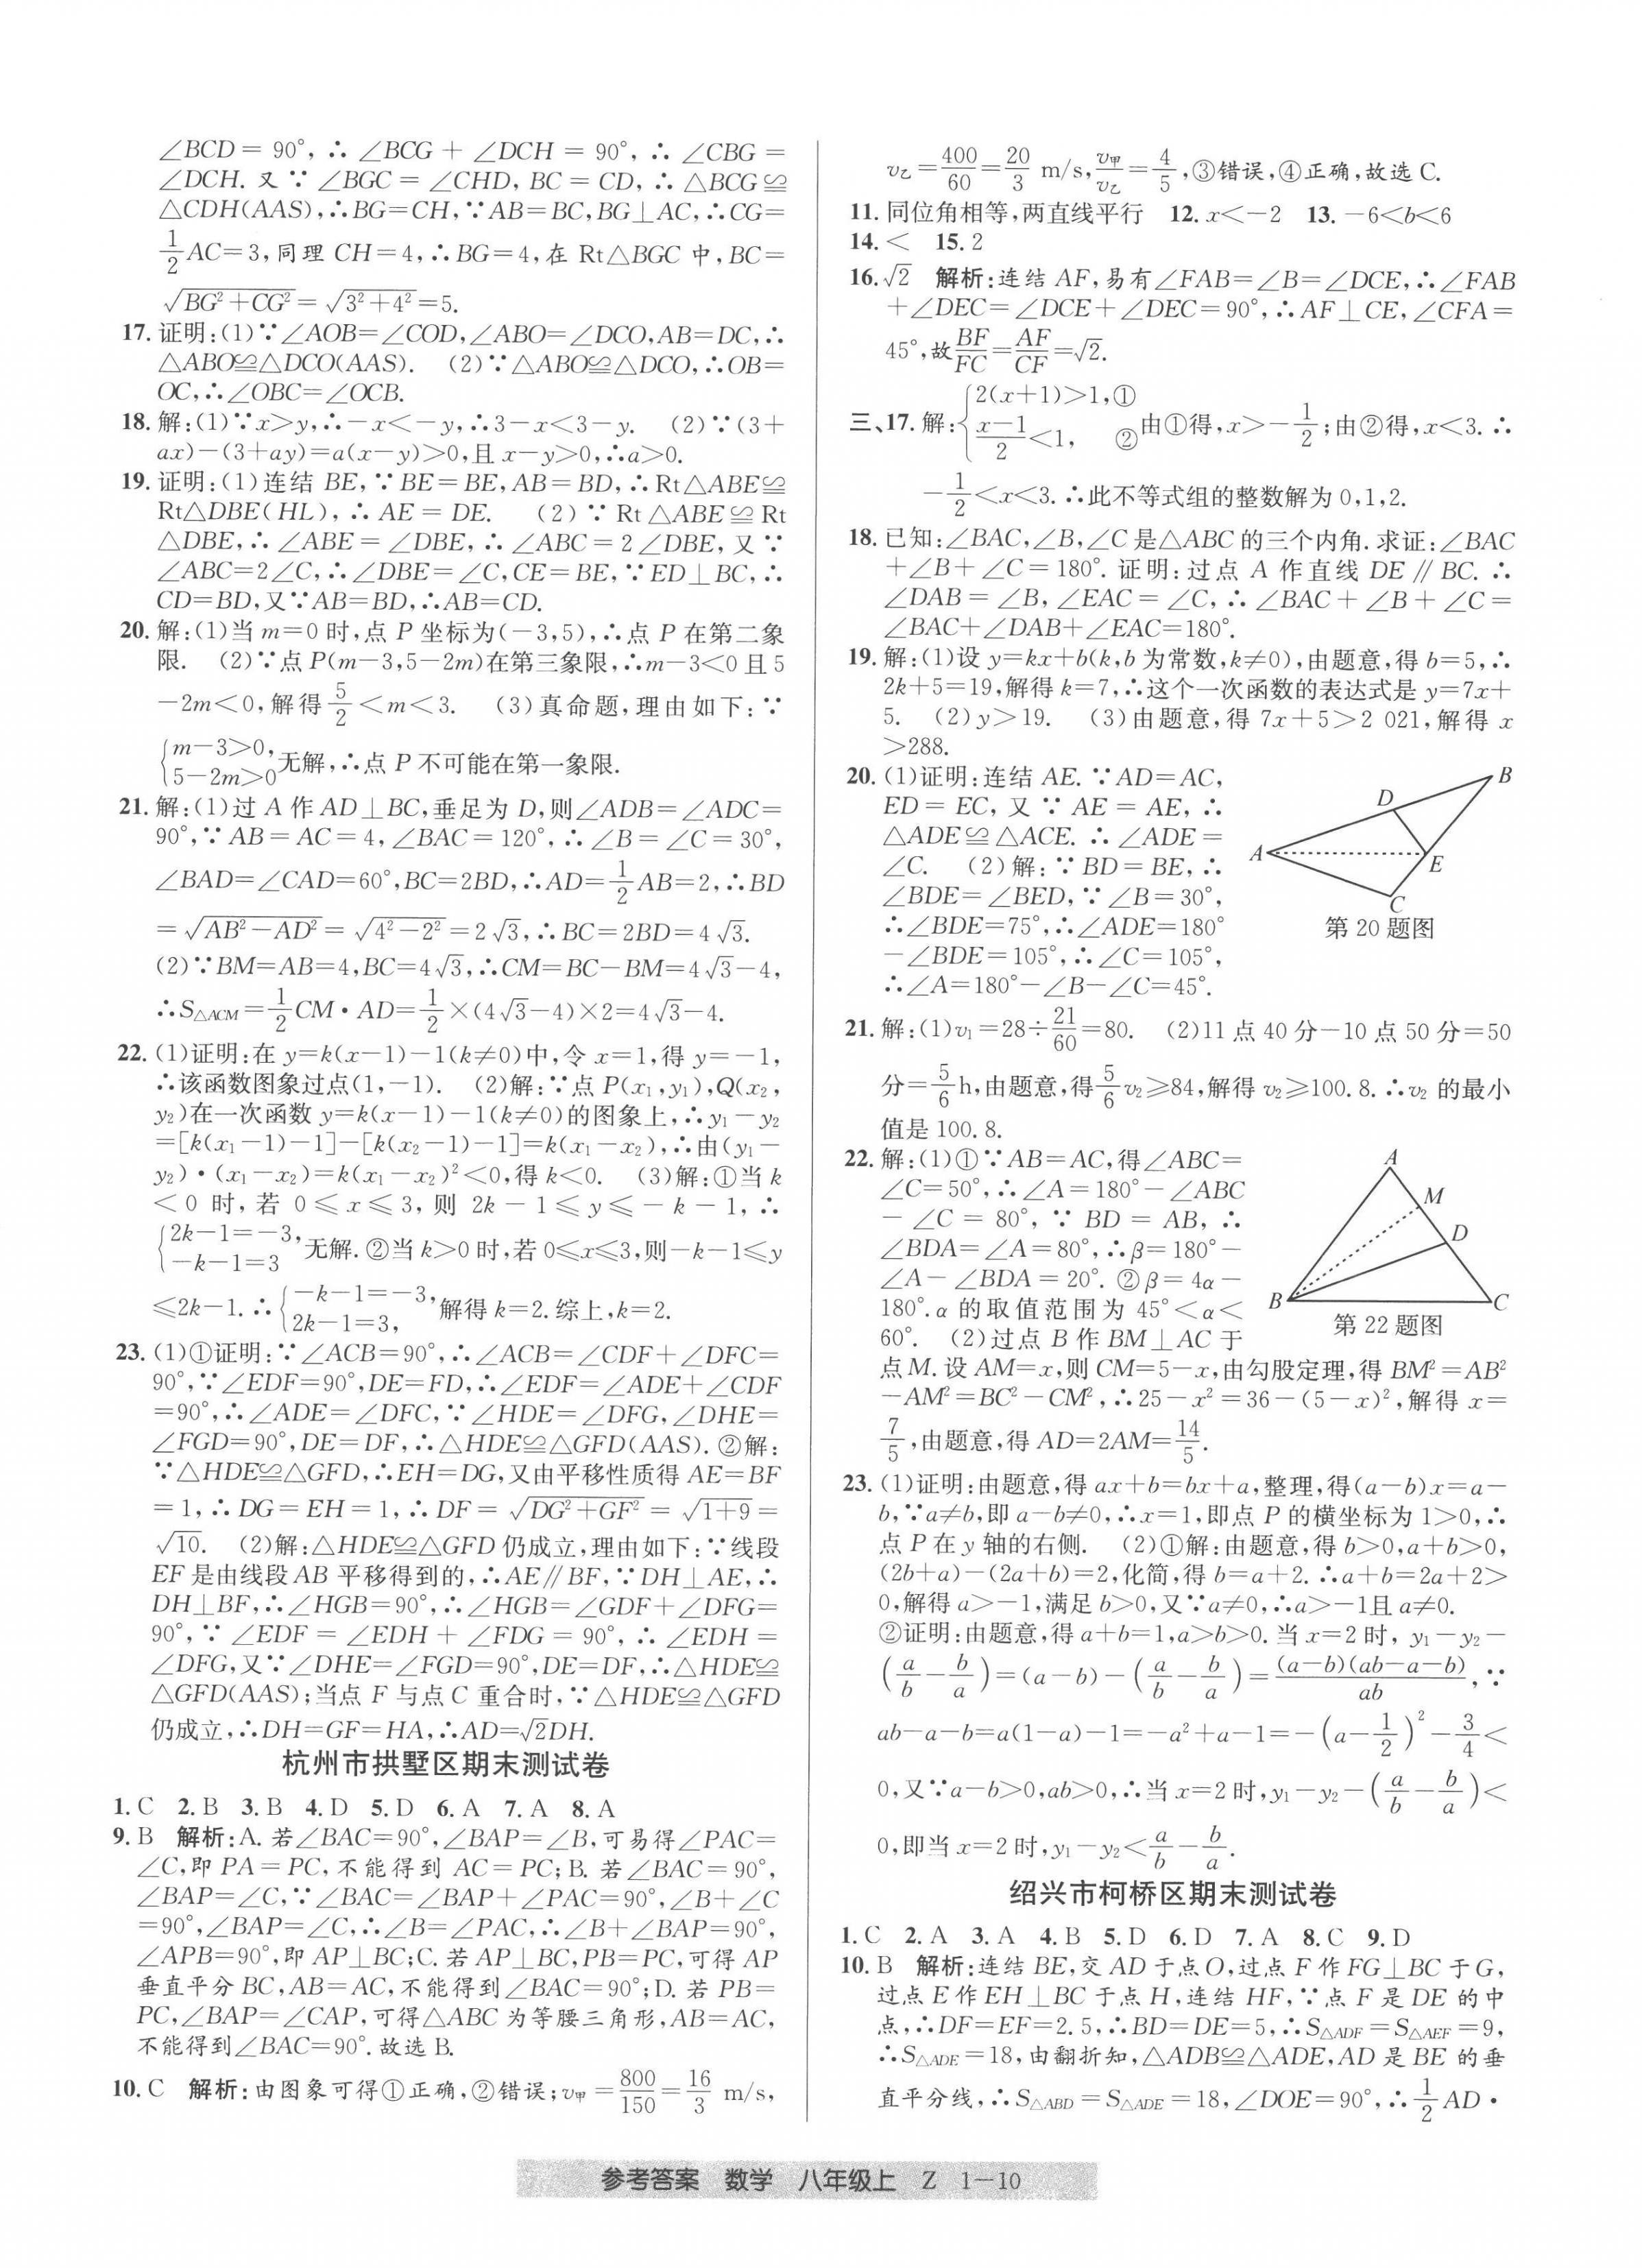 ∠BCD = 90°, ∴ ∠BCG + ∠DCH = 90°, ∴ ∠CBG =
∠DCH. 又 ∵ ∠BGC = ∠CHD, BC = CD, ∴ △BCG≌
△CDH(AAS),∴BG=CH,∵AB=BC,BG⊥AC,∴CG=
1/2 AC=3,同理 CH=4,∴BG=4,在 Rt△BGC 中,BC=
√(BG²+CG²)=√(3²+4²)=5.
17. 证明:(1)∵∠AOB=∠COD,∠ABO=∠DCO,AB=DC,∴
△ABO≌△DCO(AAS). (2)∵△ABO≌△DCO,∴OB=
OC,∴∠OBC=∠OCB.
18. 解:(1)∵x>y,∴-x<-y,∴3-x<3-y. (2)∵(3+
ax)-(3+ay)=a(x-y)>0,且 x-y>0,∴a>0.
19. 证明:(1)连结 BE,∵BE=BE,AB=BD,∴Rt△ABE≌
Rt△DBE(HL),∴AE=DE. (2)∵Rt△ABE≌Rt
△DBE,∴∠ABE=∠DBE,∴∠ABC=2∠DBE,又∵
∠ABC=2∠C,∴∠DBE=∠C,CE=BE,∵ED⊥BC,∴
CD=BD,又∵AB=BD,∴AB=CD.
20. 解:(1)当 m=0 时,点 P 坐标为(-3,5),∴点 P 在第二象
限. (2)∵点 P(m-3,5-2m)在第三象限,∴m-3<0 且 5
-2m<0,解得 5/2<m<3. (3)真命题,理由如下:∵
{m-3>0, 5-2m>0 无解,∴点 P 不可能在第一象限.
21. 解:(1)过 A 作 AD⊥BC,垂足为 D,则∠ADB=∠ADC=
90°,∵AB=AC=4,∠BAC=120°,∴∠B=∠C=30°,
∠BAD=∠CAD=60°,BC=2BD,∴AD=1/2 AB=2,∴BD
=√(AB²-AD²)=√(4²-2²)=2√3,∴BC=2BD=4√3.
(2)∵BM=AB=4,BC=4√3,∴CM=BC-BM=4√3-4,
∴S△ACM=1/2 CM·AD=1/2×(4√3-4)×2=4√3-4.
22. (1)证明:在 y=k(x-1)-1(k≠0)中,令 x=1,得 y=-1,
∴该函数图象过点(1,-1). (2)解:∵点 P(x₁,y₁),Q(x₂,
y₂)在一次函数 y=k(x-1)-1(k≠0)的图象上,∴y₁-y₂
=[k(x₁-1)-1]-[k(x₂-1)-1]=k(x₁-x₂),∴由(y₁-
y₂)·(x₁-x₂)=k(x₁-x₂)²<0,得 k<0. (3)解:①当 k
<0 时,若 0≤x≤3,则 2k-1≤y≤-k-1,∴
{2k-1=-3, -k-1=3 无解.②当 k>0 时,若 0≤x≤3,则-k-1≤y
≤2k-1.∴{-k-1=-3, 2k-1=3, 解得 k=2.综上,k=2.
23. (1)①证明:∵∠ACB=90°,∴∠ACB=∠CDF+∠DFC=
90°,∵∠EDF=90°,DE=FD,∴∠EDF=∠ADE+∠CDF
=90°,∴∠ADE=∠DFC,∵∠HDE=∠DFG,∠DHE=
∠FGD=90°,DE=DF,∴△HDE≌△GFD(AAS).②解:
∵△HDE≌△GFD,∴EH=DG,又由平移性质得 AE=BF
=1,∴DG=EH=1,∴DF=√(DG²+GF²)=√(1+9)=
√10. (2)解:△HDE≌△GFD 仍成立,理由如下:∵线段
EF 是由线段 AB 平移得到的,∴AE∥BF,∵DH⊥AE,∴
DH⊥BF,∴∠HGB=90°,∴∠HGB=∠GDF+∠DFG=
90°,∵∠EDF=∠EDH+∠FDG=90°,∴∠EDH=
∠DFG,又∵∠DHE=∠FGD=90°,DE=DF,∴△HDE≌
△GFD(AAS);当点 F 与点 C 重合时,∵△HDE≌△GFD
仍成立,∴DH=GF=HA,∴AD=√2DH.
杭州市拱墅区期末测试卷
1. C 2. B 3. B 4. D 5. D 6. A 7. A 8. A
9. B 解析:A. 若∠BAC=90°,∠BAP=∠B,可易得∠PAC=
∠C,即 PA=PC,不能得到 AC=PC;B. 若∠BAC=90°,
∠BAP=∠C,∵∠BAC=∠BAP+∠PAC=90°,∠B+∠C
=90°,∠BAP=∠C,∴∠B=∠PAC,∴∠B+∠BAP=90°,
∠APB=90°,即 AP⊥BC;C. 若 AP⊥BC,PB=PC,可得 AP
垂直平分 BC,AB=AC,不能得到∠BAC=90°;D. 若 PB=
PC,∠BAP=∠CAP,可得△ABC 为等腰三角形,AB=AC,
不能得到∠BAC=90°.故选 B.
10. C 解析:由图象可得①正确,②错误;v甲=800/150=16/3 m/s,
v乙=400/60=20/3 m/s,v甲/v乙=4/5,③错误,④正确,故选 C.
11. 同位角相等,两直线平行 12. x<-2 13. -6<b<6
14. < 15. 2
16. √2 解析:连结 AF,易有∠FAB=∠B=∠DCE,∴∠FAB
+∠DEC=∠DCE+∠DEC=90°,∴AF⊥CE,∠CFA=
45°,故 BF/FC=AF/CF=√2.
三、17. 解:{2(x+1)>1,① (x-1)/2<1, ② 由①得,x>-1/2;由②得,x<3.∴
-1/2<x<3.∴此不等式组的整数解为 0,1,2.
18. 已知:∠BAC,∠B,∠C 是△ABC 的三个内角.求证:∠BAC
+∠B+∠C=180°.证明:过点 A 作直线 DE∥BC.∴
∠DAB=∠B,∠EAC=∠C,∴∠BAC+∠B+∠C=
∠BAC+∠DAB+∠EAC=180°.
19. 解:(1)设 y=kx+b(k,b 为常数,k≠0),由题意,得 b=5,∴
2k+5=19,解得 k=7,∴这个一次函数的表达式是 y=7x+
5. (2)y>19. (3)由题意,得 7x+5>2 021,解得 x
>288.
20. (1)证明:连结 AE.∵AD=AC,
ED=EC,又∵AE=AE,∴
△ADE≌△ACE.∴∠ADE=
∠C. (2)解:∵BD=BE,∴
∠BDE=∠BED,∵∠B=30°,
∴∠BDE=75°,∴∠ADE=180°
-∠BDE=105°,∴∠C=105°,
∴∠A=180°-∠B-∠C=45°.
B
D
A
E
C
第 20 题图
21. 解:(1)v₁=28÷21/60=80. (2)11 点 40 分-10 点 50 分=50
分=5/6 h,由题意,得 5/6 v₂≥84,解得 v₂≥100.8.∴v₂ 的最小
值是 100.8.
22. 解:(1)①∵AB=AC,得∠ABC=
∠C=50°,∴∠A=180°-∠ABC
-∠C=80°,∵BD=AB,∴
∠BDA=∠A=80°,∴β=180°-
∠A-∠BDA=20°.②β=4α-
180°.α 的取值范围为 45°<α<
60°. (2)过点 B 作 BM⊥AC 于
A
M
D
B
C
第 22 题图
点 M.设 AM=x,则 CM=5-x,由勾股定理,得 BM²=AB²
-AM²=BC²-CM²,∴25-x²=36-(5-x)²,解得 x=
7/5,由题意,得 AD=2AM=14/5.
23. (1)证明:由题意,得 ax+b=bx+a,整理,得(a-b)x=a-
b,∵a≠b,即 a-b≠0,∴x=1,即点 P 的横坐标为 1>0,∴
点 P 在 y 轴的右侧. (2)①解:由题意,得 b>0,a+b>0,
(2b+a)-(2a+b)=2,化简,得 b=a+2.∴a+b=2a+2>
0,解得 a>-1,满足 b>0,又∵a≠0,∴a>-1且 a≠0.
②证明:由题意,得 a+b=1,a>b>0.当 x=2 时, y₁-y₂-
(a/b-b/a)=(a-b)-(a/b-b/a)=(a-b)(ab-a-b)/ab,∵
ab-a-b=a(1-a)-1=-a²+a-1=-(a-1/2)²-3/4<
0,又∵a-b>0,ab>0,∴当 x=2 时,y₁-y₂-(a/b-b/a)<
0,即当 x=2 时,y₁-y₂<a/b-b/a.
绍兴市柯桥区期末测试卷
1. C 2. A 3. A 4. B 5. D 6. D 7. A 8. C 9. D
10. B 解析:连结 BE,交 AD 于点 O,过点 F 作 FG⊥BC 于 G,
过点 E 作 EH⊥BC 于点 H,连结 HF,∵点 F 是 DE 的中
点,∴DF=EF=2.5,∴BD=DE=5,∴S△ADF=S△AEF=9,
∴S△ADE=18,由翻折知,△ADB≌△ADE,AD 是 BE 的垂
直平分线,∴S△ABD=S△ADE=18,∠DOE=90°,∴1/2 AD·
参考答案 数学 八年级上 Z 1-10